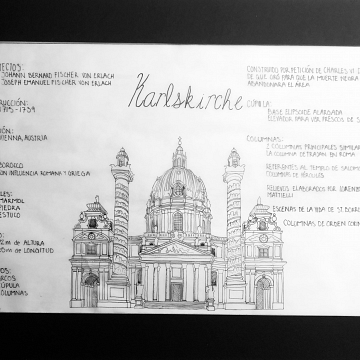 Karlskirche
JOHANN BERNARD FISCHER VON ERLACH
JOSEPH EMANUEL FISCHER VON ERLACH
1715 - 1739
VIENNA, AUSTRIA
BARROCO
CON INFLUENCIA ROMANA Y GRIEGA
MARMOL
PIEDRA
ESTUCO
DE ALTURA
DE LONGITUD
ARCOS
CÚPULA
COLUMNAS
CONSTRUIDO POR PETICIÓN DE CHARLES VI
QUE ORÓ PARA QUE LA MUERTE NEGRA
ABANDONARA EL ÁREA
CÚPULA:
BASE ELIPSOIDE ALARGADA
ELEVADOR PARA VER FRESCOS DE
COLUMNAS:
2 COLUMNAS PRINCIPALES SIMILAR
LA COLUMNA DE TRAJAN EN ROMA
REFERENTES AL TEMPLO DE SALOM
COLUMNAS DE HÉRCULES
RELIEVES ELABORADOS POR LORENZO
MATTIELLI
ESCENAS DE LA VIDA DE ST. BORRO
COLUMNAS DE ORDEN CORIN